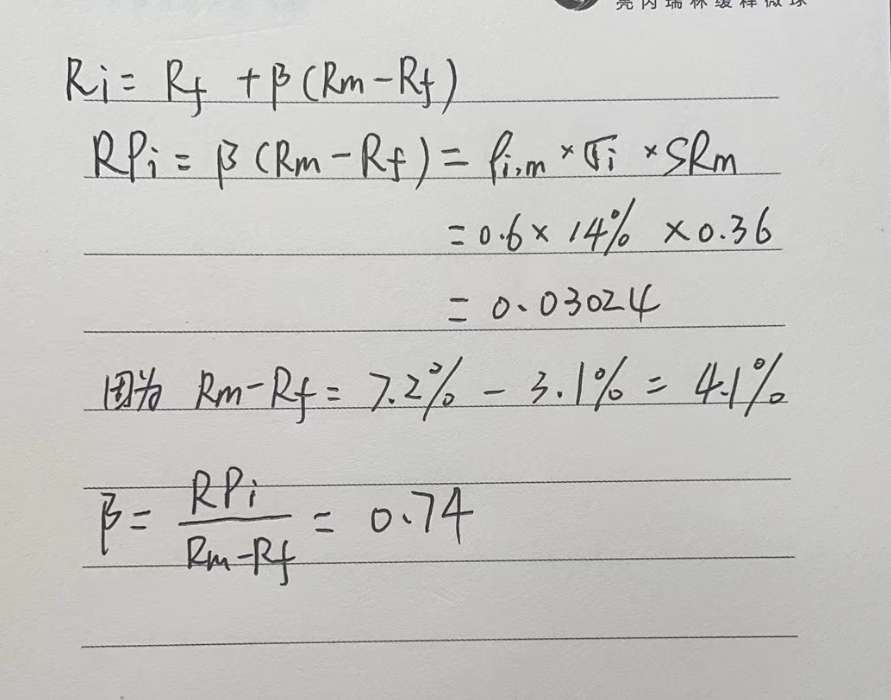 亮丙瑞林缓释微球
Ri = Rf + β(Rm-Rf)
RPi = β(Rm-Rf) = ρi,m × σi × SRm
= 0.6 × 14% × 0.36
= 0.03024
因为 Rm-Rf = 7.2% - 3.1% = 4.1%
β = RPi / Rm-Rf = 0.74